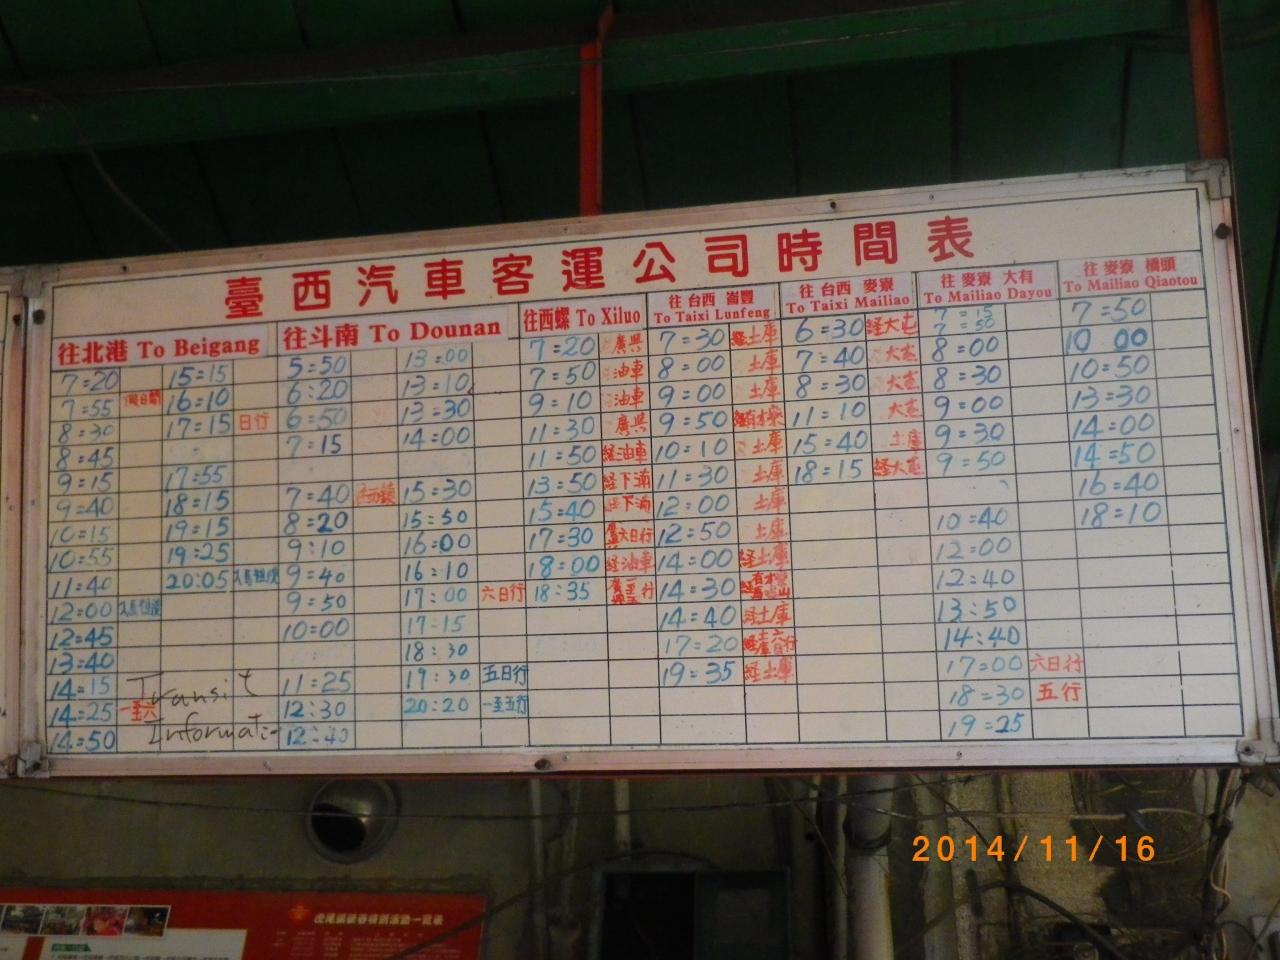 臺西汽車客運公司時間表
往北港 To Beigang
往斗南 To Dounan
往西螺 To Xiluo
往 台西 崙豐
To Taixi Lunfeng
往 台西 麥寮
To Taixi Mailiao
往 麥寮 大有
To Mailiao Dayou
往 麥寮 橋頭
To Mailiao Qiaotou
7=20
7=55
8=30
8=45
9=15
9=40
10=15
10=55
11=40
12=00
12=45
13=40
14=15
14=25 一至六
14=50
15=15
16=10
17=15 日行
17=55
18=15
19=15
19=25
20:05
Transit
Informatio
5=50
6=20
6=50
7=15
7=40
8=20
9:10
9=40
9=50
10=00
11=25
12:30
12:40
13:00
13=10
13=30
14=00
15=30
15:50
16=00
16:10
17:00 六日行
17:15
18:30
19:30 五日行
20:20 一至五行
7=20 廣興
7=50 油車
9=10 油車
11=30 廣興
11=50 経油車
13=50 経下湳
15=40 経下湳
17=30
18=00 経油車
18:35
7=30 経土庫
8=00 土庫
9=00 土庫
9=50
10=10 土庫
11=30 土庫
12=00 土庫
12=50 土庫
14=00 経土庫
14=30
14=40 経土庫
17=20
19=35 経土庫
6=30 経大屯
7=40
8=30
11=10
15=40 土庫
18=15 経大屯
7=15
7=50
8=00
8=30
9=00
9=30
9=50
10=40
12=00
12=40
13=50
14=40
17=00 六日行
18=30 五行
19=25
7=50
10 00
10=50
13=30
14=00
14=50
16=40
18=10
2014/11/16
虎尾鎮新春特別活動一覽表